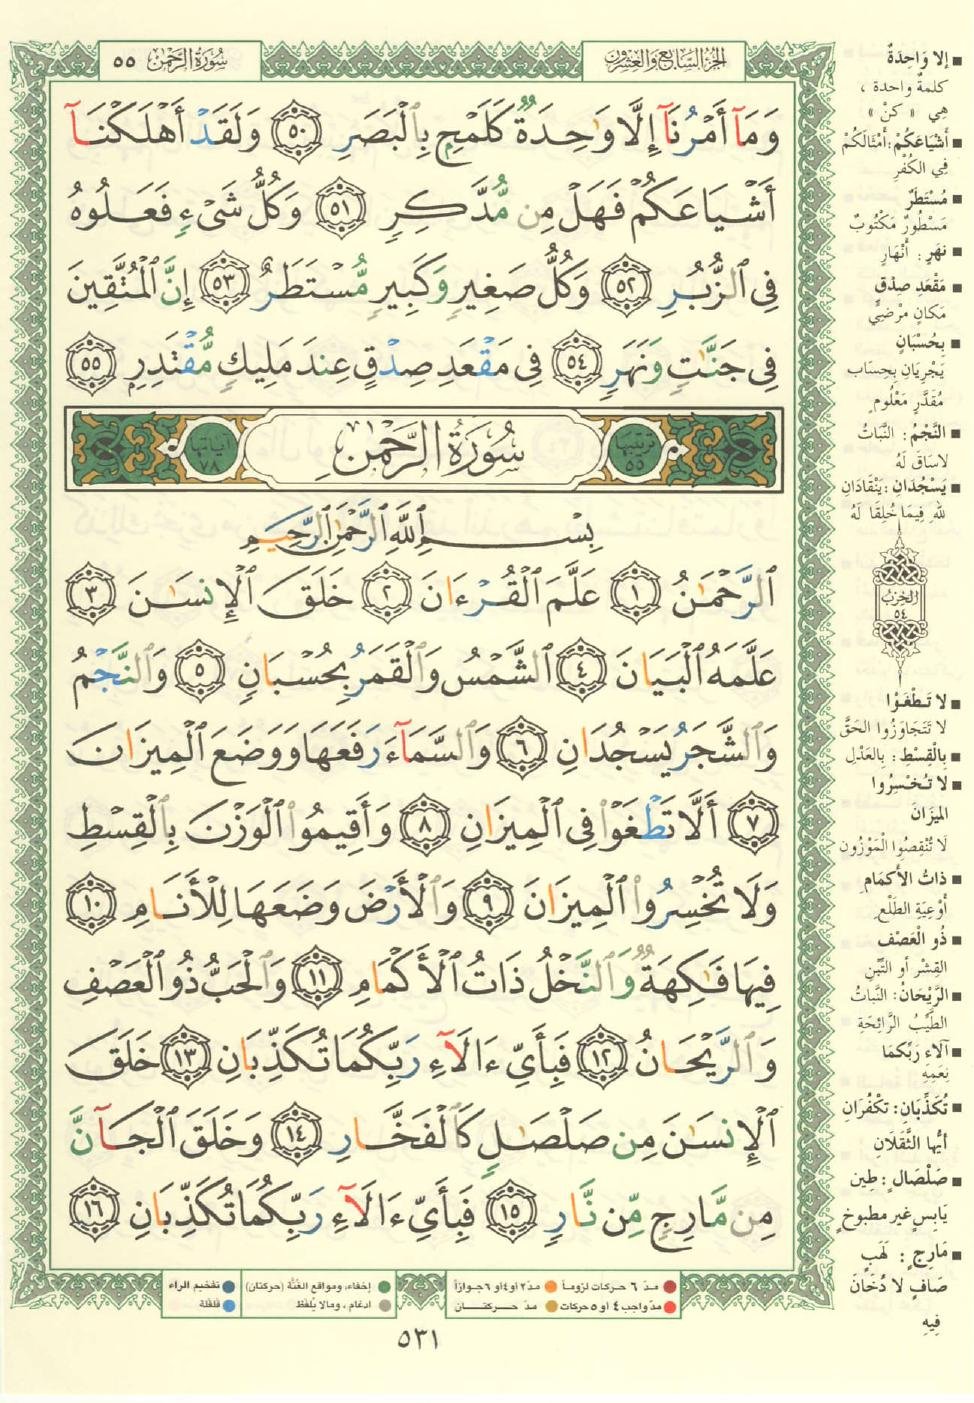 سُورَةُ الرَّحْمَٰن ٥٥
الجُزْءُ السَّابِعُ وَالعِشْرُونَ
وَمَآ أَمْرُنَآ إِلَّا وَٰحِدَةٌ كَلَمْحٍۭ بِٱلْبَصَرِ ٥٠ وَلَقَدْ أَهْلَكْنَآ
أَشْيَاعَكُمْ فَهَلْ مِن مُّدَّكِرٍ ٥١ وَكُلُّ شَىْءٍ فَعَلُوهُ
فِى ٱلزُّبُرِ ٥٢ وَكُلُّ صَغِيرٍ وَكَبِيرٍ مُّسْتَطَرٌ ٥٣ إِنَّ ٱلْمُتَّقِينَ
فِى جَنَّٰتٍ وَنَهَرٍ ٥٤ فِى مَقْعَدِ صِدْقٍ عِندَ مَلِيكٍ مُّقْتَدِرٍۭ ٥٥
ترتيبها ٥٥ سُورَةُ الرَّحْمَٰنِ آياتها ٧٨
بِسْمِ ٱللَّهِ ٱلرَّحْمَٰنِ ٱلرَّحِيمِ
ٱلرَّحْمَٰنُ ١ عَلَّمَ ٱلْقُرْءَانَ ٢ خَلَقَ ٱلْإِنسَٰنَ ٣
عَلَّمَهُ ٱلْبَيَانَ ٤ ٱلشَّمْسُ وَٱلْقَمَرُ بِحُسْبَانٍ ٥ وَٱلنَّجْمُ
وَٱلشَّجَرُ يَسْجُدَانِ ٦ وَٱلسَّمَآءَ رَفَعَهَا وَوَضَعَ ٱلْمِيزَانَ
٧ أَلَّا تَطْغَوْا۟ فِى ٱلْمِيزَانِ ٨ وَأَقِيمُوا۟ ٱلْوَزْنَ بِٱلْقِسْطِ
وَلَا تُخْسِرُوا۟ ٱلْمِيزَانَ ٩ وَٱلْأَرْضَ وَضَعَهَا لِلْأَنَامِ ١٠
فِيهَا فَٰكِهَةٌ وَٱلنَّخْلُ ذَاتُ ٱلْأَكْمَامِ ١١ وَٱلْحَبُّ ذُو ٱلْعَصْفِ
وَٱلرَّيْحَانُ ١٢ فَبِأَىِّ ءَالَآءِ رَبِّكُمَا تُكَذِّبَانِ ١٣ خَلَقَ
ٱلْإِنسَٰنَ مِن صَلْصَٰلٍ كَٱلْفَخَّارِ ١٤ وَخَلَقَ ٱلْجَآنَّ
مِن مَّارِجٍ مِّن نَّارٍ ١٥ فَبِأَىِّ ءَالَآءِ رَبِّكُمَا تُكَذِّبَانِ ١٦
إِلا وَاحِدَةٌ
كلمةٌ واحدة ،
هي « كنْ »
أَشْيَاعَكُمْ: أمْثَالَكُمْ
في الكُفْرِ
مُسْتَطَرٌ
مَسْطُورٌ مَكْتُوبٌ
نَهَرٍ : أنْهَارٍ
مَقْعَدِ صِدْقٍ
مَكانٍ مَرْضِيٍّ
بِحُسْبَانٍ
يَجْرِيَانِ بِحِسَاب
مُقَدَّرٍ مَعْلُومٍ
النَّجْمُ : النَّبَاتُ
لاساقَ لَهُ
يَسْجُدَانِ : يَنْقَادَانِ
للهِ فِيمَا خُلِقَا لَهُ
الحِزْب ٥٤
لا تَطْغَوْا
لا تَتَجَاوَزُوا الحَقَّ
بِالْقِسْطِ : بالعَدْلِ
لا تُخْسِرُوا
الميزَانَ
لا تُنْقِصُوا المَوْزُون
ذَاتُ الأَكْمَامِ
أوْعِيَةِ الطَّلْعِ
ذُو العَصْفِ
القِشْرِ أو التِّبْنِ
الرَّيْحَانُ : النَّبَاتُ
الطَّيِّبُ الرَّائِحَةِ
آلاءِ رَبِّكُمَا
نِعَمِهِ
تُكَذِّبَانِ : تَكْفُرَانِ
أيُّها الثَّقَلانِ
صَلْصَالٍ : طِين
يَابِسٍ غير مطبوخٍ
مَارِجٍ : لَهَبٍ
صَافٍ لا دُخَانَ
فيهِ
مدّ ٦ حركات لزوماً
مدّ ٢ او ٤ او ٦ جوازاً
إخفاء، ومواقع الغُنَّة (حركتان)
تفخيم الراء
مدّ واجب ٤ او ٥ حركات
مدّ حركتان
ادغام ، ومالا يُلفَظ
قلقلة
٥٣١